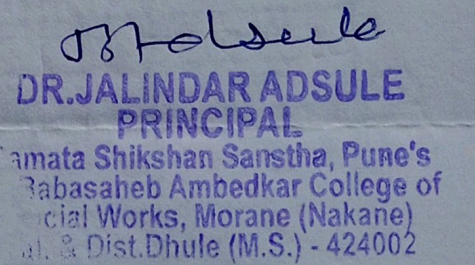 Adsule
DR.JALINDAR ADSULE
PRINCIPAL
amata Shikshan Sanstha, Pune's
Babasaheb Ambedkar College of
cial Works, Morane (Nakane)
& Dist.Dhule (M.S.) - 424002